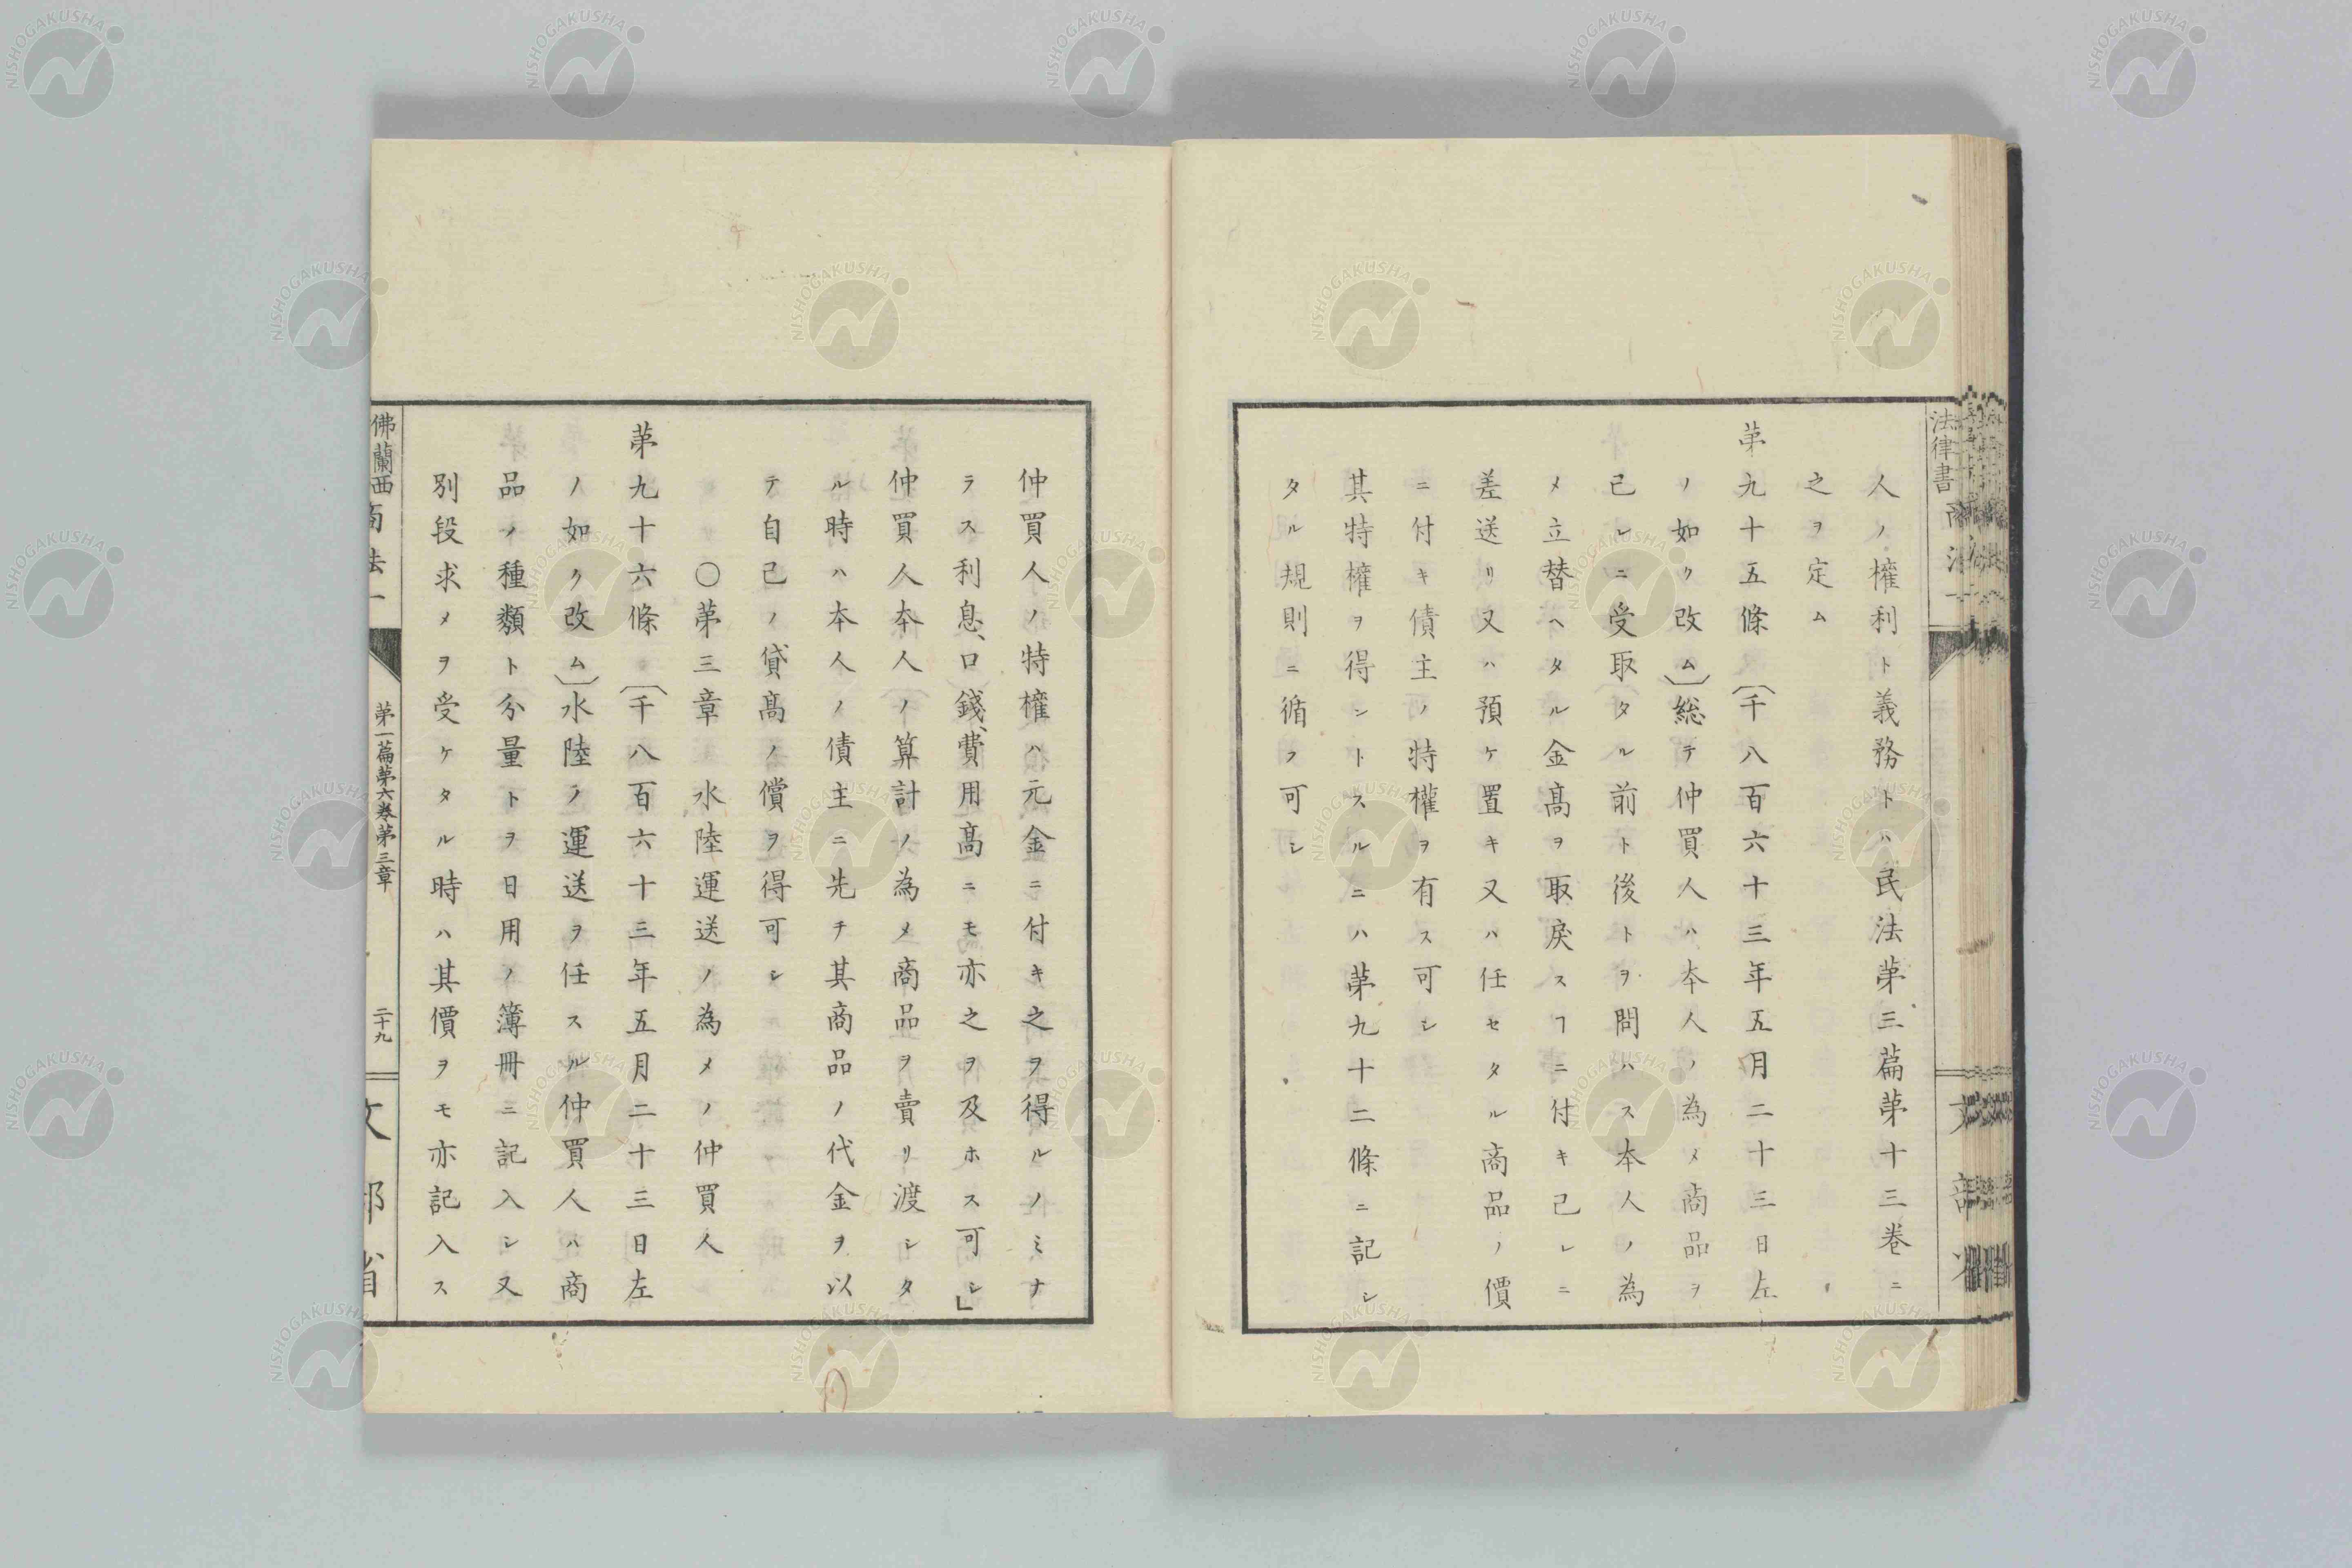 法律書
人ノ權利ト義務トハ民法苐三篇苐十三卷ニ
之ヲ定ム
苐九十五條〔千八百六十三年五月二十三日左
ノ如ク改ム〕総テ仲買人ハ本人ノ為メ商品ヲ
已レニ受取タル前ト後トヲ問ハス本人ノ為
メ立替ヘタル金髙ヲ取戾スヿニ付キ己レニ
差送リ又ハ預ケ置キ又ハ任セタル商品ノ價
ニ付キ債主ノ特權ヲ有ス可シ
其特權ヲ得ントスルニハ苐九十二條ニ記シ
タル規則ニ循フ可シ
仲買人ノ特權ハ元金ニ付キ之ヲ得ルノミナ
ラス利息、口錢、費用髙ニモ亦之ヲ及ホス可シ」
仲買人本人ノ算計ノ為メ商品ヲ賣リ渡シタ
ル時ハ本人ノ債主ニ先チ其商品ノ代金ヲ以
テ自己ノ貸髙ノ償ヲ得可シ
〇苐三章 水陸運送ノ為メノ仲買人
苐九十六條〔千八百六十三年五月二十三日左
ノ如ク改ム〕水陸ノ運送ヲ任スル仲買人ハ商
品ノ種類ト分量トヲ日用ノ簿冊ニ記入シ又
別段求メヲ受ケタル時ハ其價ヲモ亦記入ス
佛蘭西商法一 苐一篇苐六卷苐三章 二十九 文部省
NISHOGAKUSHA